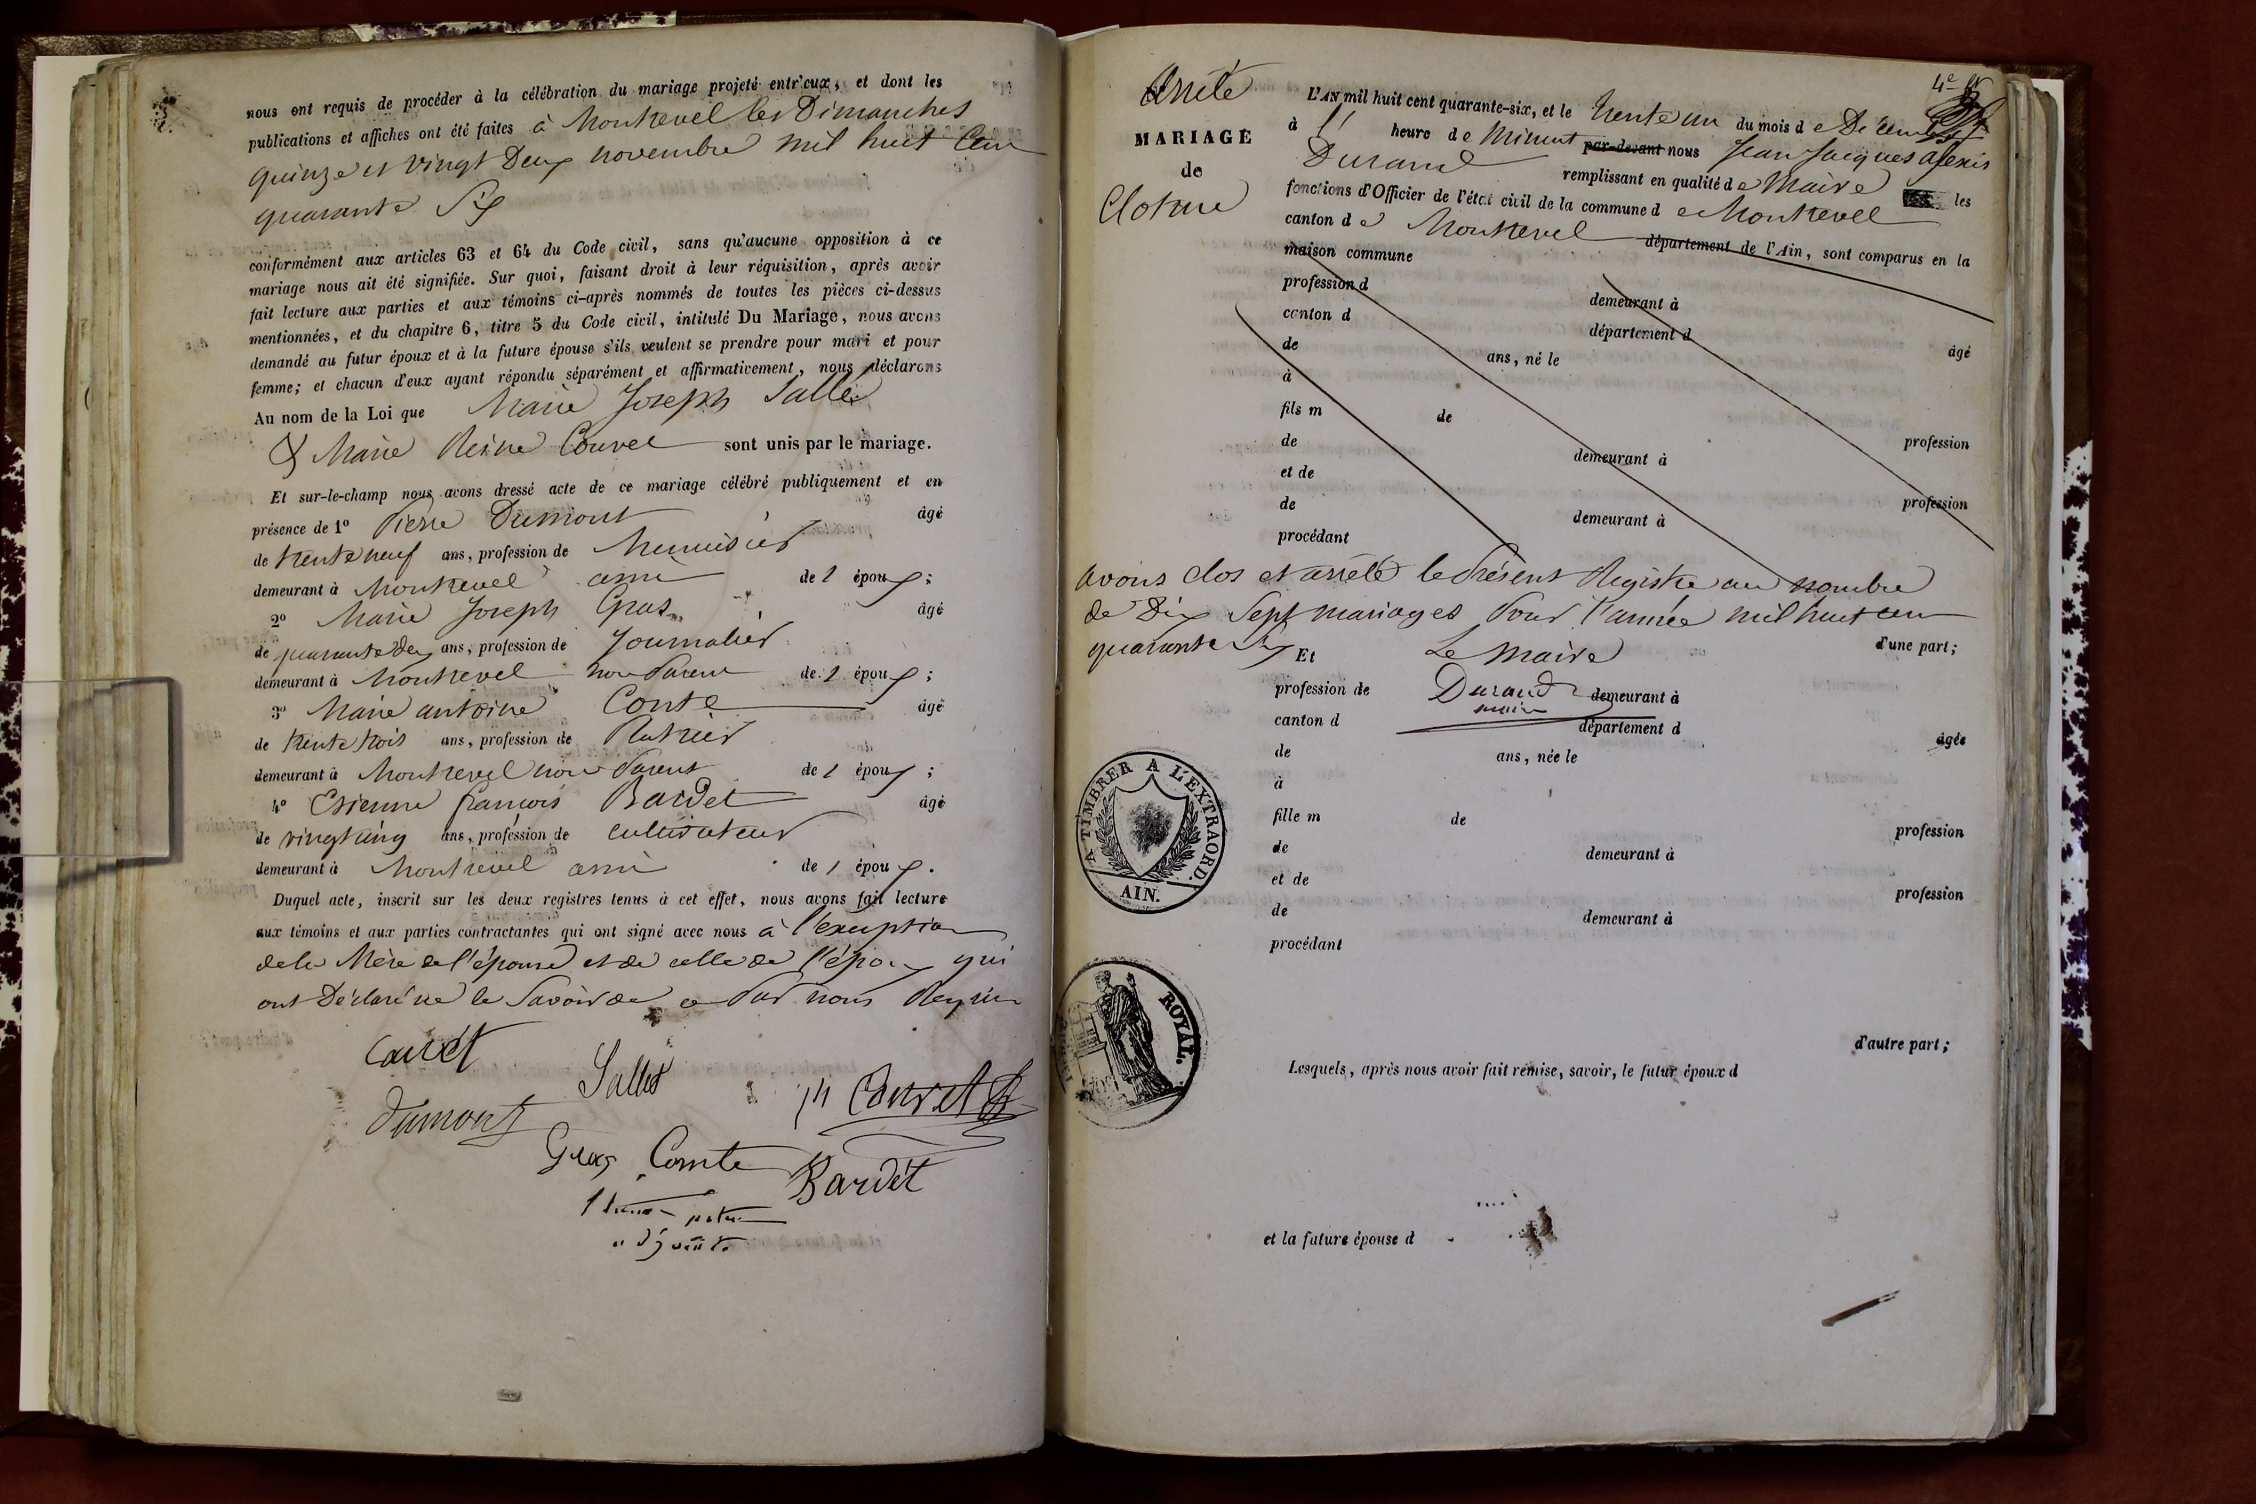 nous ont requis de procéder à la célébration du mariage projeté entr'eux, et dont les
publications et affiches ont été faites à Montrevel les Dimanches
quinze et vingt Deux novembre mil huit Cent
quarante Six
conformément aux articles 63 et 64 du Code civil, sans qu'aucune opposition à ce
mariage nous ait été signifiée. Sur quoi, faisant droit à leur réquisition, après avoir
fait lecture aux parties et aux témoins ci-après nommés de toutes les pièces ci-dessus
mentionnées, et du chapitre 6, titre 5 du Code civil, intitulé Du Mariage, nous avons
demandé au futur époux et à la future épouse s'ils veulent se prendre pour mari et pour
femme; et chacun d'eux ayant répondu séparément et affirmativement, nous déclarons
Au nom de la Loi que Marie Joseph Sallet
& Marie Reine Couvet sont unis par le mariage.
Et sur-le-champ nous avons dressé acte de ce mariage célébré publiquement et en
présence de 1º Pierre Dumont âgé
de trente neuf ans, profession de Menuisier
demeurant à Montrevel ami de l époux;
2º Marie Joseph Gras âgé
de quarante deux ans, profession de Journalier
demeurant à Montrevel non Parent de l époux;
3º Marie antoine Conte âgé
de trente trois ans, profession de Platrier
demeurant à Montrevel non Parent de l époux;
4º Etienne françois Bardet âgé
de vingt cinq ans, profession de cultivateur
demeurant à Montrevel ami de l époux.
Duquel acte, inscrit sur les deux registres tenus à cet effet, nous avons fait lecture
aux témoins et aux parties contractantes qui ont signé avec nous à l'exception
de la Mère de l'épouse et de celle de l'époux qui
ont Déclaré ne le Savoir de ce Par nous Requis
Couvet
Sallet
Couvet
Dumont
Gras Comte
Bardet
4e
Arrêté
MARIAGE
de
Cloture
L'AN mil huit cent quarante-six, et le trente un du mois de Décembre
à 11 heure de Minuit par-devant nous Jean Jacques alexis
Durand remplissant en qualité de Maire les
fonctions d'Officier de l'état civil de la commune de Montrevel
canton de Montrevel département de l'Ain, sont comparus en la
maison commune
profession d demeurant à
canton d département d
de ans, né le âgé
à
fils m de
de demeurant à profession
et de
de demeurant à profession
procédant
avons clos et arrêté le Présent Registre au nombre
de Dix Sept mariages Pour l'année mil huit cent
quarante Six Et Le Maire d'une part;
profession de Durand demeurant à
maire
canton d département d
de ans, née le âgée
à
fille m de
de demeurant à profession
et de
de demeurant à profession
procédant
A TIMBRER A L'EXTRAORD.
AIN.
ROYAL.
d'autre part;
Lesquels, après nous avoir fait remise, savoir, le futur époux d
et la future épouse d